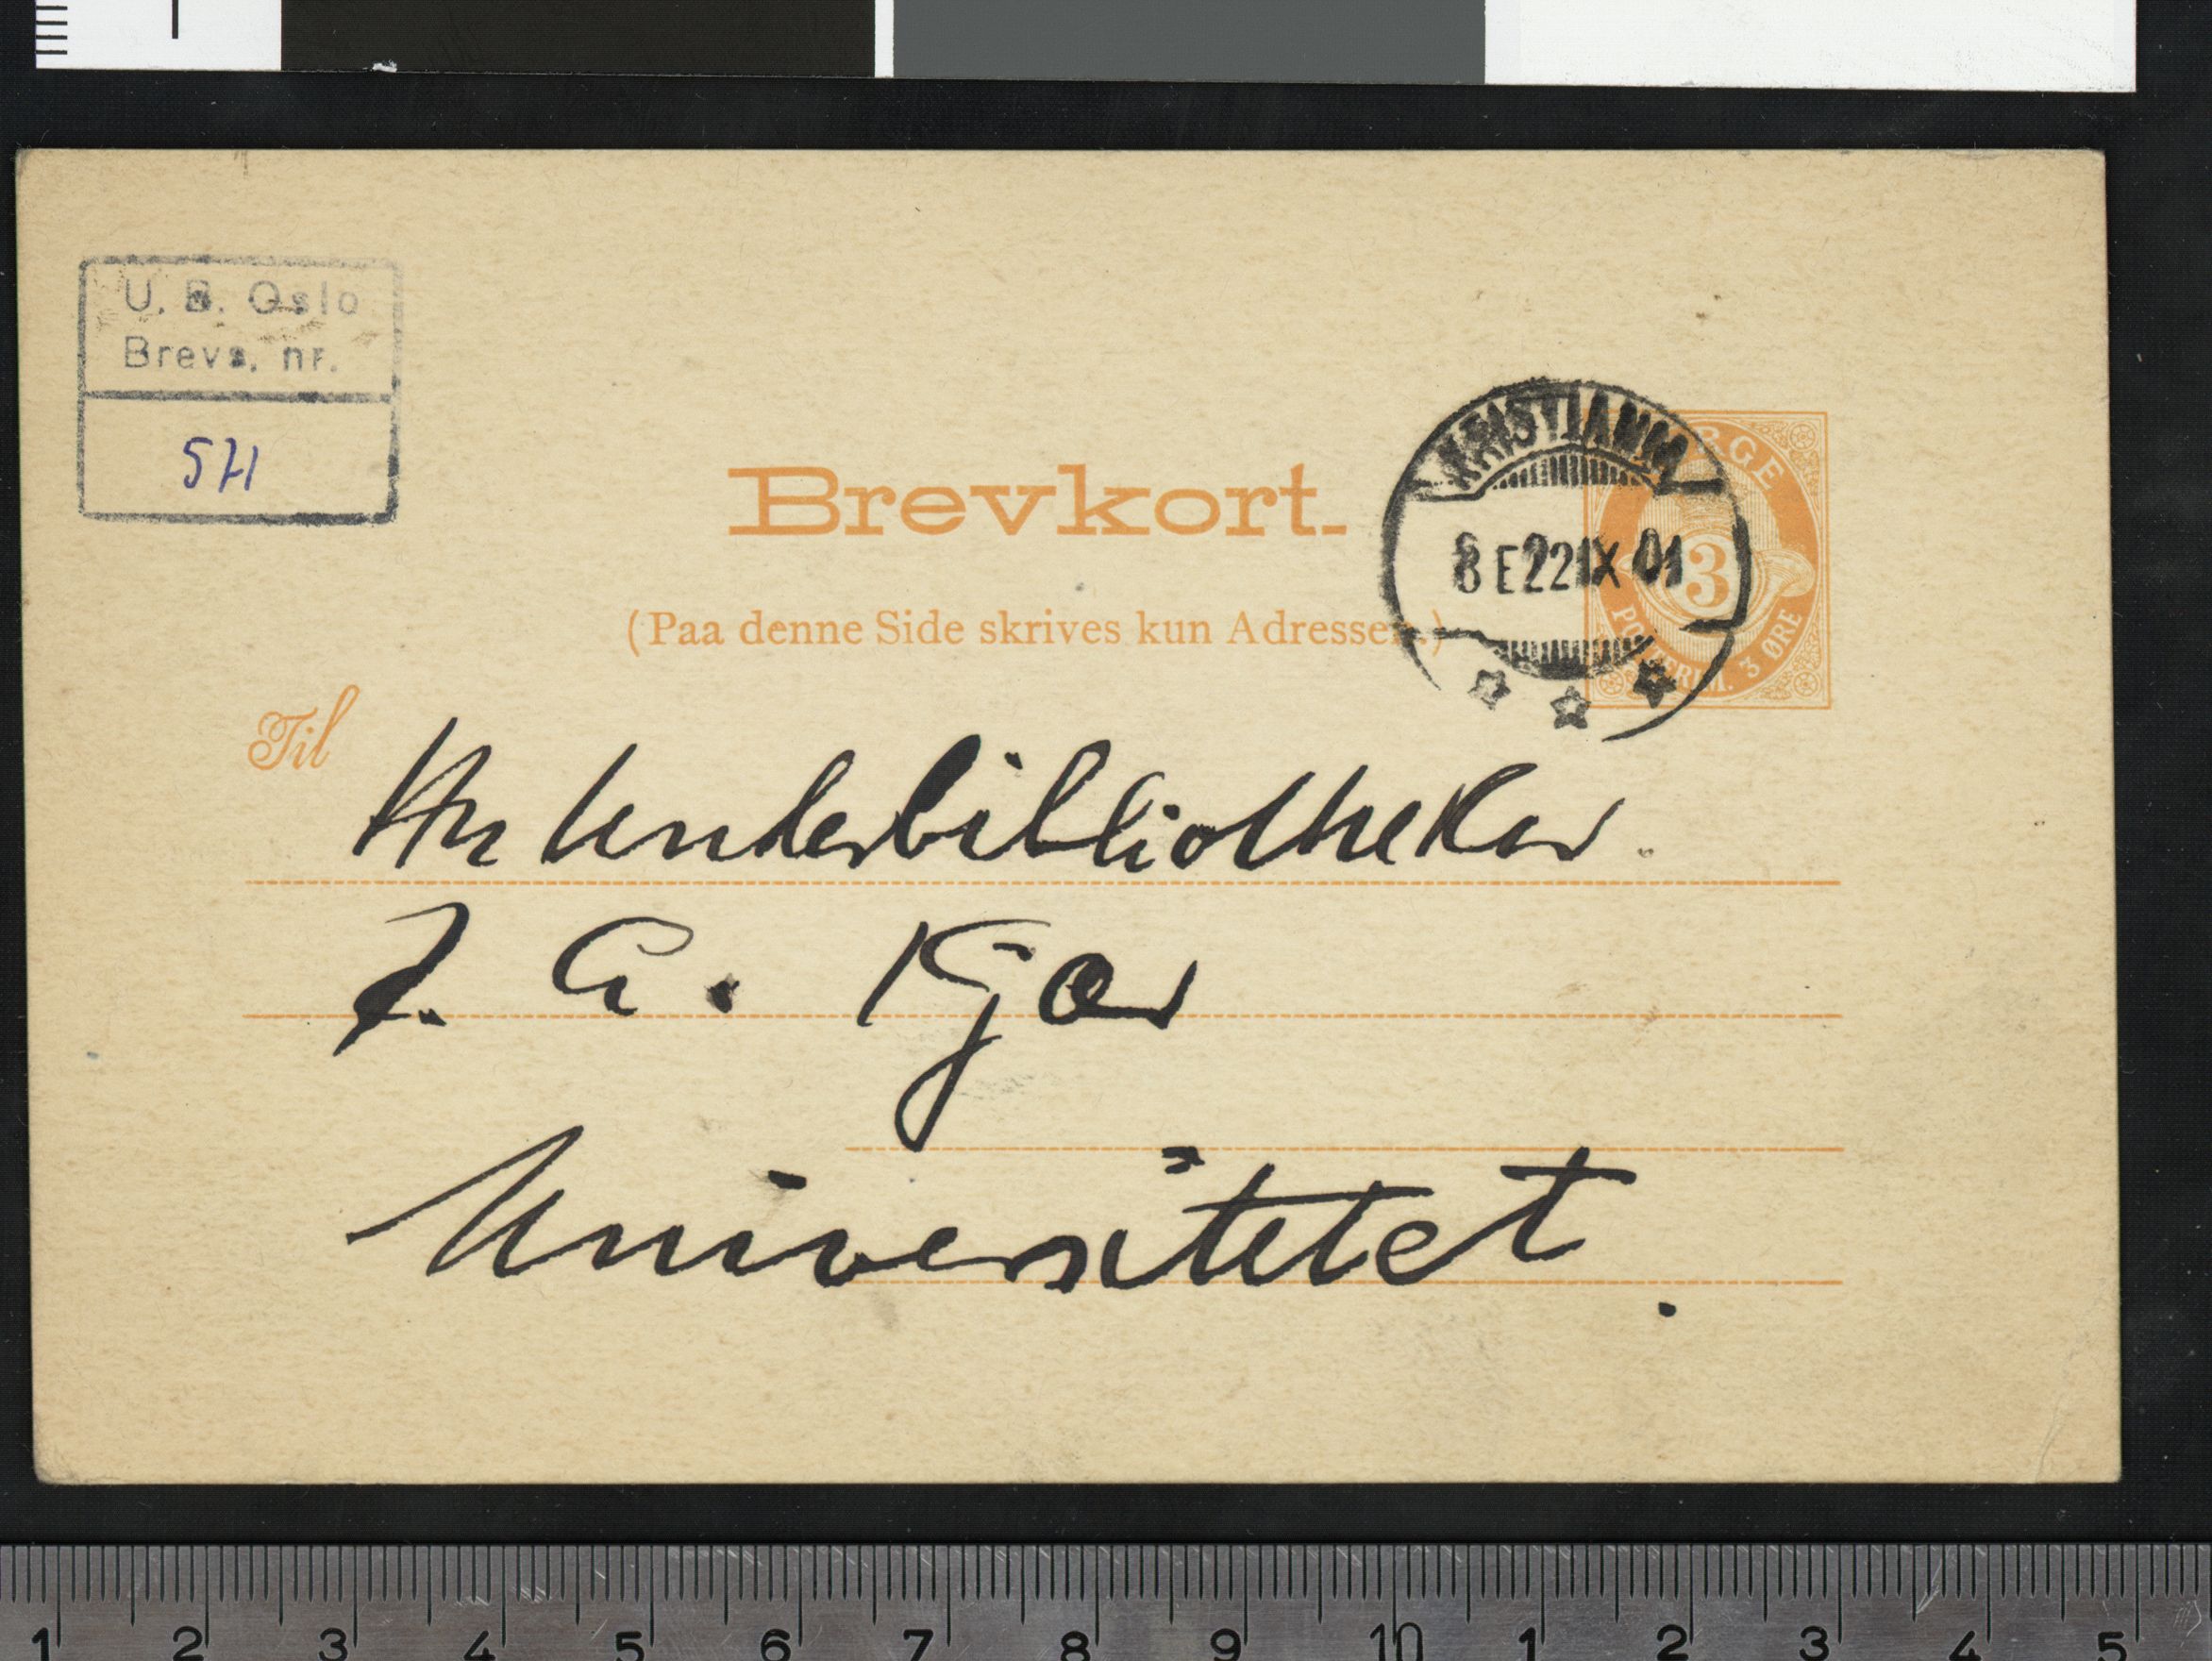 U. B. Oslo
Brevs. nr.
571
Brevkort.
KRISTIANIA
8 E 22 IX 01
NORGE
3
POSTFRIM. 3 ØRE
(Paa denne Side skrives kun Adressen.)
Til
Hr Underbibliothekar
A. Kjær
Universitetet.
1 2 3 4 5 6 7 8 9 10 1 2 3 4 5